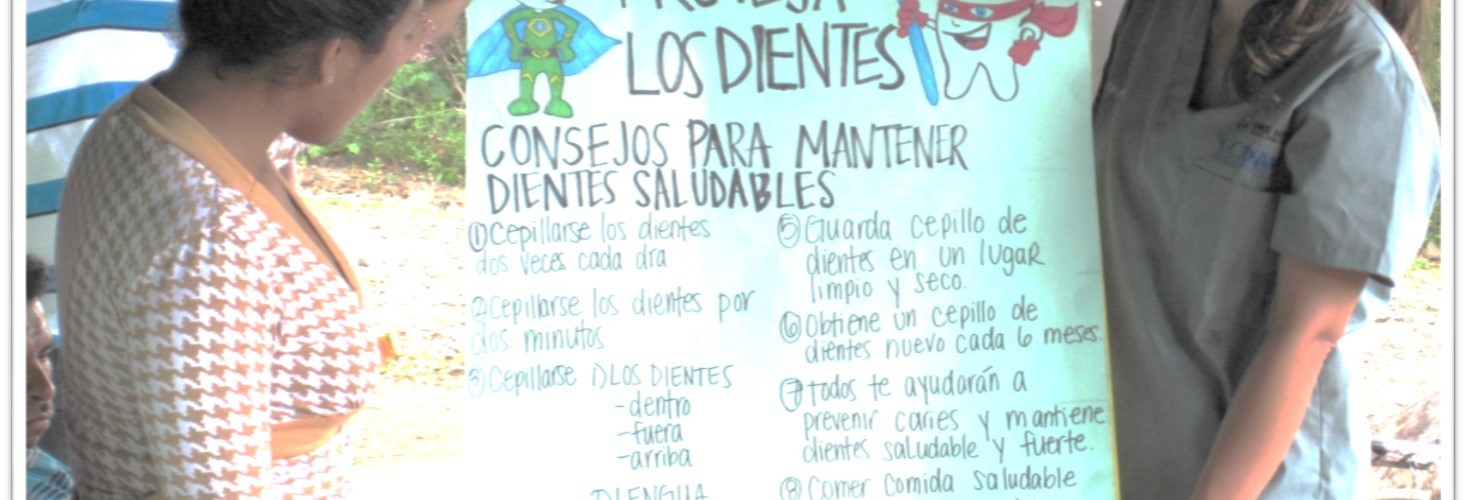 LOS DIENTES
CONSEJOS PARA MANTENER
DIENTES SALUDABLES
① Cepillarse los dientes
dos veces cada dra
② Cepillarse los dientes por
dos minutos
③ Cepillarse 1) LOS DIENTES
-dentro
-fuera
-arriba
LENGUA
⑤ Guarda cepillo de
dientes en un lugar
limpio y seco.
⑥ Obtiene un cepillo de
dientes nuevo cada 6 meses.
⑦ todos te ayudarán a
prevenir caries y mantiene
dientes saludable y fuerte.
⑧ Comer Comida saludable